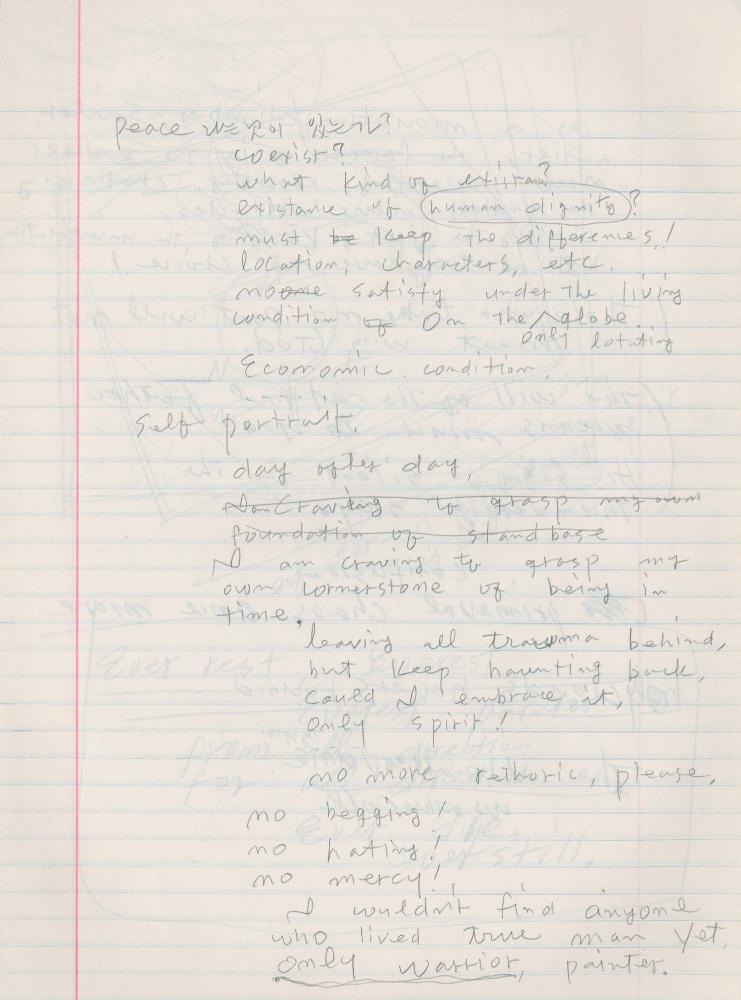 peace 라는것이 있는가?
coexist?
what kind of existan?
existance of human dignity?
must be keep the differences!
location, characters, etc.
noone satisfy under the living
condition of on the globe.
only lotating
Economic condition.
Self portrait.
day after day,
I am craving to grasp my own
foundation of stand base
I am craving to grasp my
own cornerstone of being in
time.
leaving all trauma behind,
but keep haunting back,
could I embrace it,
only spirit!
no more rethoric, please,
no begging!
no hating!
no mercy!
I wouldn't find anyone
who lived true man yet,
only warrior, painter.